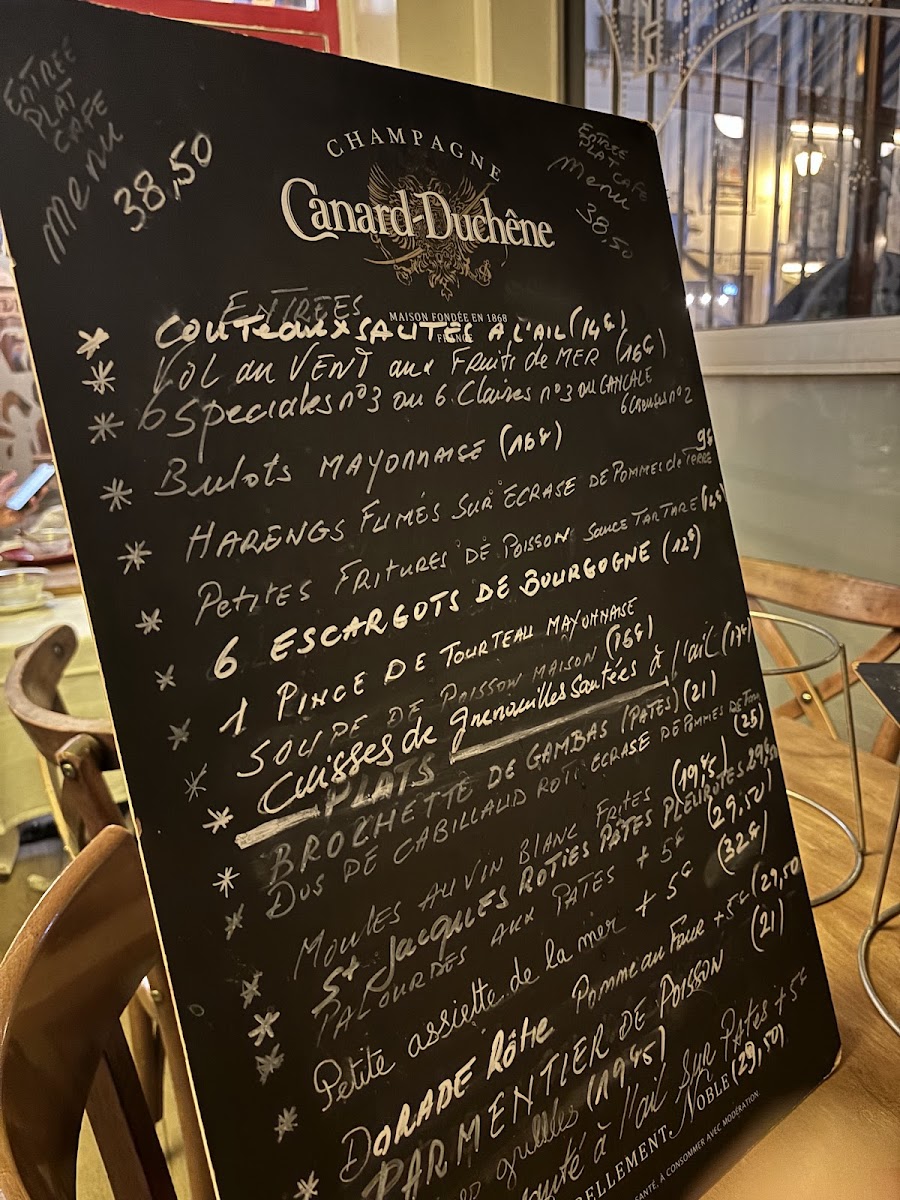 ENTREE
PLAT
CAFE
Menu
38,50
ENTREE
PLAT CAFE
Menu
38,50
CHAMPAGNE
Canard-Duchêne
MAISON FONDÉE EN 1868
FRANCE
ENTREES
* COUTEAUX SAUTÉS A L'AIL (14€)
* VOL au VENT aux Fruits de MER (16€)
* 6 Speciales n°3 ou 6 Claires n°3 ou CANCALE
6 Creuses n°2
* Bulots MAYONNAISE (16€)
9€
* HARENGS FUMÉS SUR ECRASE DE POMMES de TERRE
* PETITES FRITURES DE POISSON SAUCE TARTARE (14€)
* 6 ESCARGOTS DE BOURGOGNE (12€)
* 1 PINCE DE TOURTEAU MAYONNAISE
* SOUPE DE POISSON MAISON (16€)
* Cuisses de grenouilles sautées à l'ail (17€)
PLATS
* BROCHETTE DE GAMBAS (PATES) (21)
* DOS DE CABILLAUD ROTI ECRASE DE POMMES DE TERRE (25)
* MOULES AU VIN BLANC FRITES (19€5)
* St Jacques ROTIES PÂTES PLEUROTES 29€50
* PALOURDES AUX PATES + 5€ (29,50)
* Petite assiette de la mer + 5€ (32€)
* DORADE RÔtie Pomme au Four + 5€ (29,50)
* PARMENTIER DE POISSON (21)
grillées (19€5)
à l'ail sur Pates + 5€
(29,50)
NOBLE
SANTÉ, À CONSOMMER AVEC MODÉRATION.